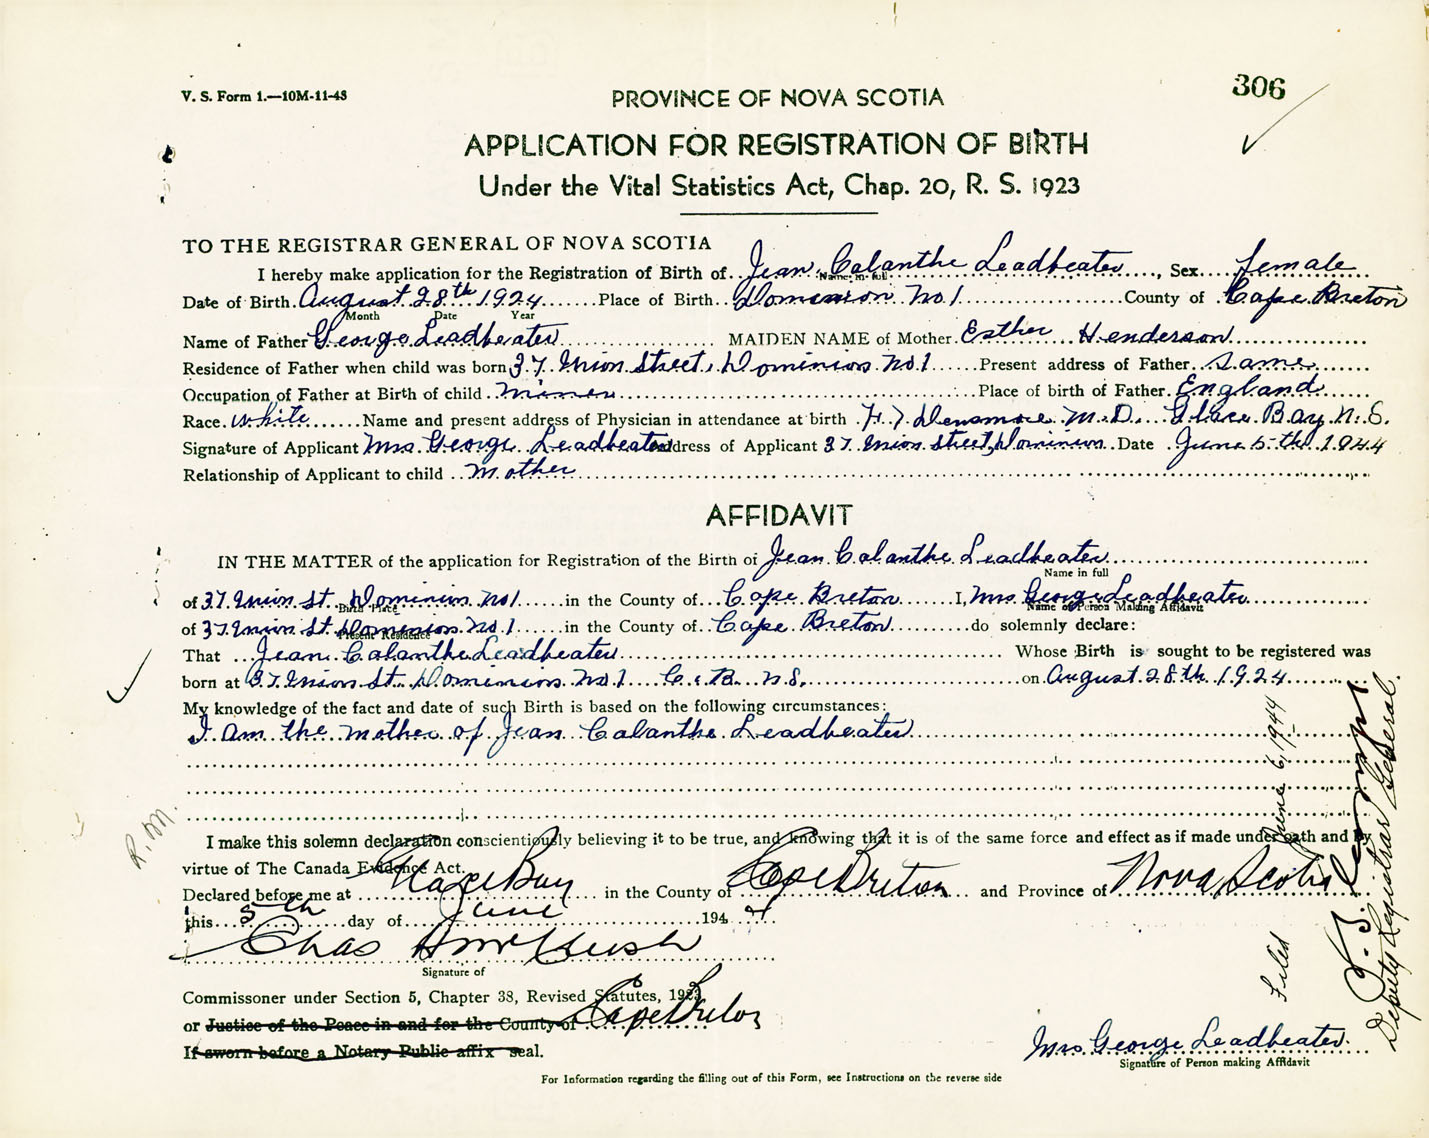 306
V. S. Form 1.—10M-11-43
PROVINCE OF NOVA SCOTIA
APPLICATION FOR REGISTRATION OF BIRTH
Under the Vital Statistics Act, Chap. 20, R. S. 1923
TO THE REGISTRAR GENERAL OF NOVA SCOTIA
I hereby make application for the Registration of Birth of Jean Calanthe Leadbeater, Sex female
Name in full
Date of Birth August 28th 1924 Place of Birth Dominion No.1 County of Cape Breton
Month Date Year
Name of Father George Leadbeater MAIDEN NAME of Mother Esther Henderson
Residence of Father when child was born 37 Union Street, Dominion No 1 Present address of Father same
Occupation of Father at Birth of child miner Place of birth of Father England
Race white Name and present address of Physician in attendance at birth Densmore M.D. Glace Bay N.S.
Signature of Applicant Mrs George Leadbeater Address of Applicant 37 Union Street, Dominion Date June 5th 1944
Relationship of Applicant to child Mother
AFFIDAVIT
IN THE MATTER of the application for Registration of the Birth of Jean Calanthe Leadbeater
Name in full
of 37 Union St. Dominion No 1 in the County of Cape Breton I, Mrs George Leadbeater
Birth Place Name of Person Making Affidavit
of 37 Union St. Dominion No. 1 in the County of Cape Breton do solemnly declare:
Present Residence
That Jean Calanthe Leadbeater Whose Birth is sought to be registered was
born at 37 Union St. Dominion No 1 C.B. N.S. on August 28th 1924
My knowledge of the fact and date of such Birth is based on the following circumstances:
I am the mother of Jean Calanthe Leadbeater
R.M.
I make this solemn declaration conscientiously believing it to be true, and knowing that it is of the same force and effect as if made under oath and by
virtue of The Canada Evidence Act.
Declared before me at Glace Bay in the County of Cape Breton and Province of Nova Scotia
this 5th day of June 194 4
Chas
Signature of
Commissoner under Section 5, Chapter 38, Revised Statutes, 1923
or Justice of the Peace in and for the County of Cape Breton
If sworn before a Notary Public affix seal.
Mrs George Leadbeater
Signature of Person making Affidavit
For Information regarding the filling out of this Form, see Instructions on the reverse side
Filed June 6, 1944
Deputy Registrar General.